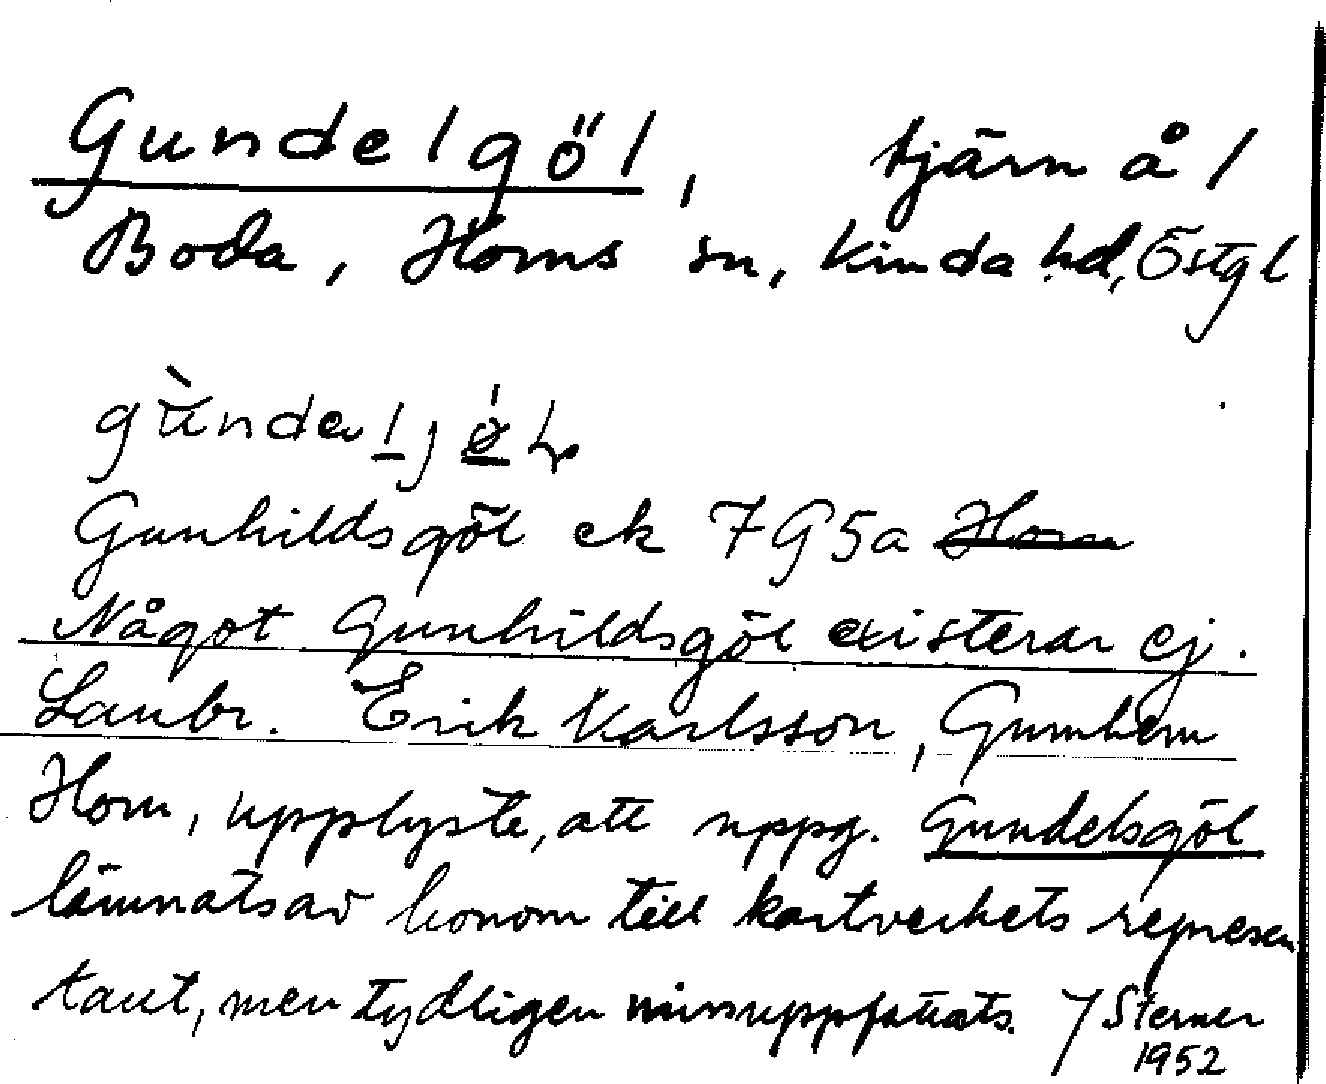 Gundelgöl, tjärn å /
Boda, Horns sn, Kinda hd, Östgl
Gunhildsgöl ek 7G5a Horn
Något Gunhildsgöl existerar ej.
Lantbr. Erik Karlsson, Gumhem
Horn, upplyste, att uppg. Gundelsgöl
lämnats av honom till kartverkets represen
tant, men tydligen missuppfattats. J Sterner
1952